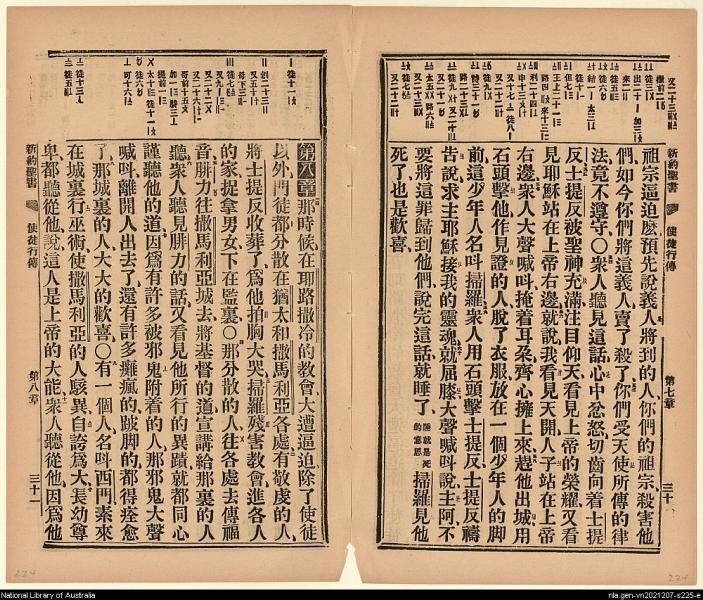 新約聖書
使徒行傳
第七章
三十
祖宗逼迫麽預先說義人將到的人你們的祖宗殺害他
們如今你們將這義人賣了殺了你們受天使所傳的律
法竟不遵守〇衆人聽見這話心中忿怒切齒向着士提
反士提反被聖神充滿注目仰天看見上帝的榮耀又看
見耶穌站在上帝右邊就說我看見天開人子站在上帝
右邊衆人大聲喊呌掩着耳朶齊心擁上來趕他出城用
石頭擊他作見證的人脫了衣服放在一個少年人的脚
前這少年人名呌掃羅衆人用石頭擊士提反士提反禱
告說求主耶穌接我的靈魂就屈膝大聲喊呌說主阿不
要將這罪歸到他們說完這話就睡了睡就是死的意思掃羅見他
死了也是歡喜
第八章那時候在耶路撒冷的教會大遭逼迫除了使徒
以外門徒都分散在猶太和撒馬利亞各處有敬虔的人
將士提反收葬了爲他拍胸大哭掃羅殘害教會進各人
的家捉拿男女下在監裏〇那分散的人往各處去傳福
音腓力往撒馬利亞城去將基督的道宣講給那裏的人
聽衆人聽見腓力的話又看見他所行的異蹟就都同心
謹聽他的道因爲有許多被邪鬼附着的人那邪鬼大聲
喊呌離開人出去了還有許多癱瘋的跛脚的都得痊愈
了那城裏的人大大的歡喜〇有一個人名呌西門素來
在城裏行巫術使撒馬利亞的人駭異自誇爲大長幼尊
卑都聽從他說這人是上帝的大能衆人聽從他因爲他
新約聖書
使徒行傳
第八章
三十一
224
224
National Library of Australia
nla.gen-vn2021207-s225-e